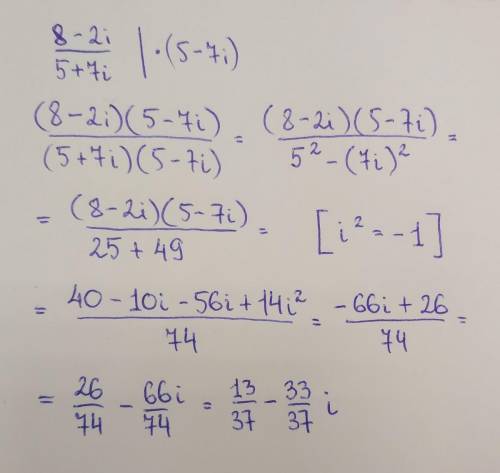 8-2i/5+7i | ·(5-7i)
(8-2i)(5-7i)/(5+7i)(5-7i) = (8-2i)(5-7i)/5²-(7i)² =
= (8-2i)(5-7i)/25+49 = [i²=-1]
= 40-10i-56i+14i²/74 = -66i+26/74 =
= 26/74 - 66i/74 = 13/37 - 33/37 i